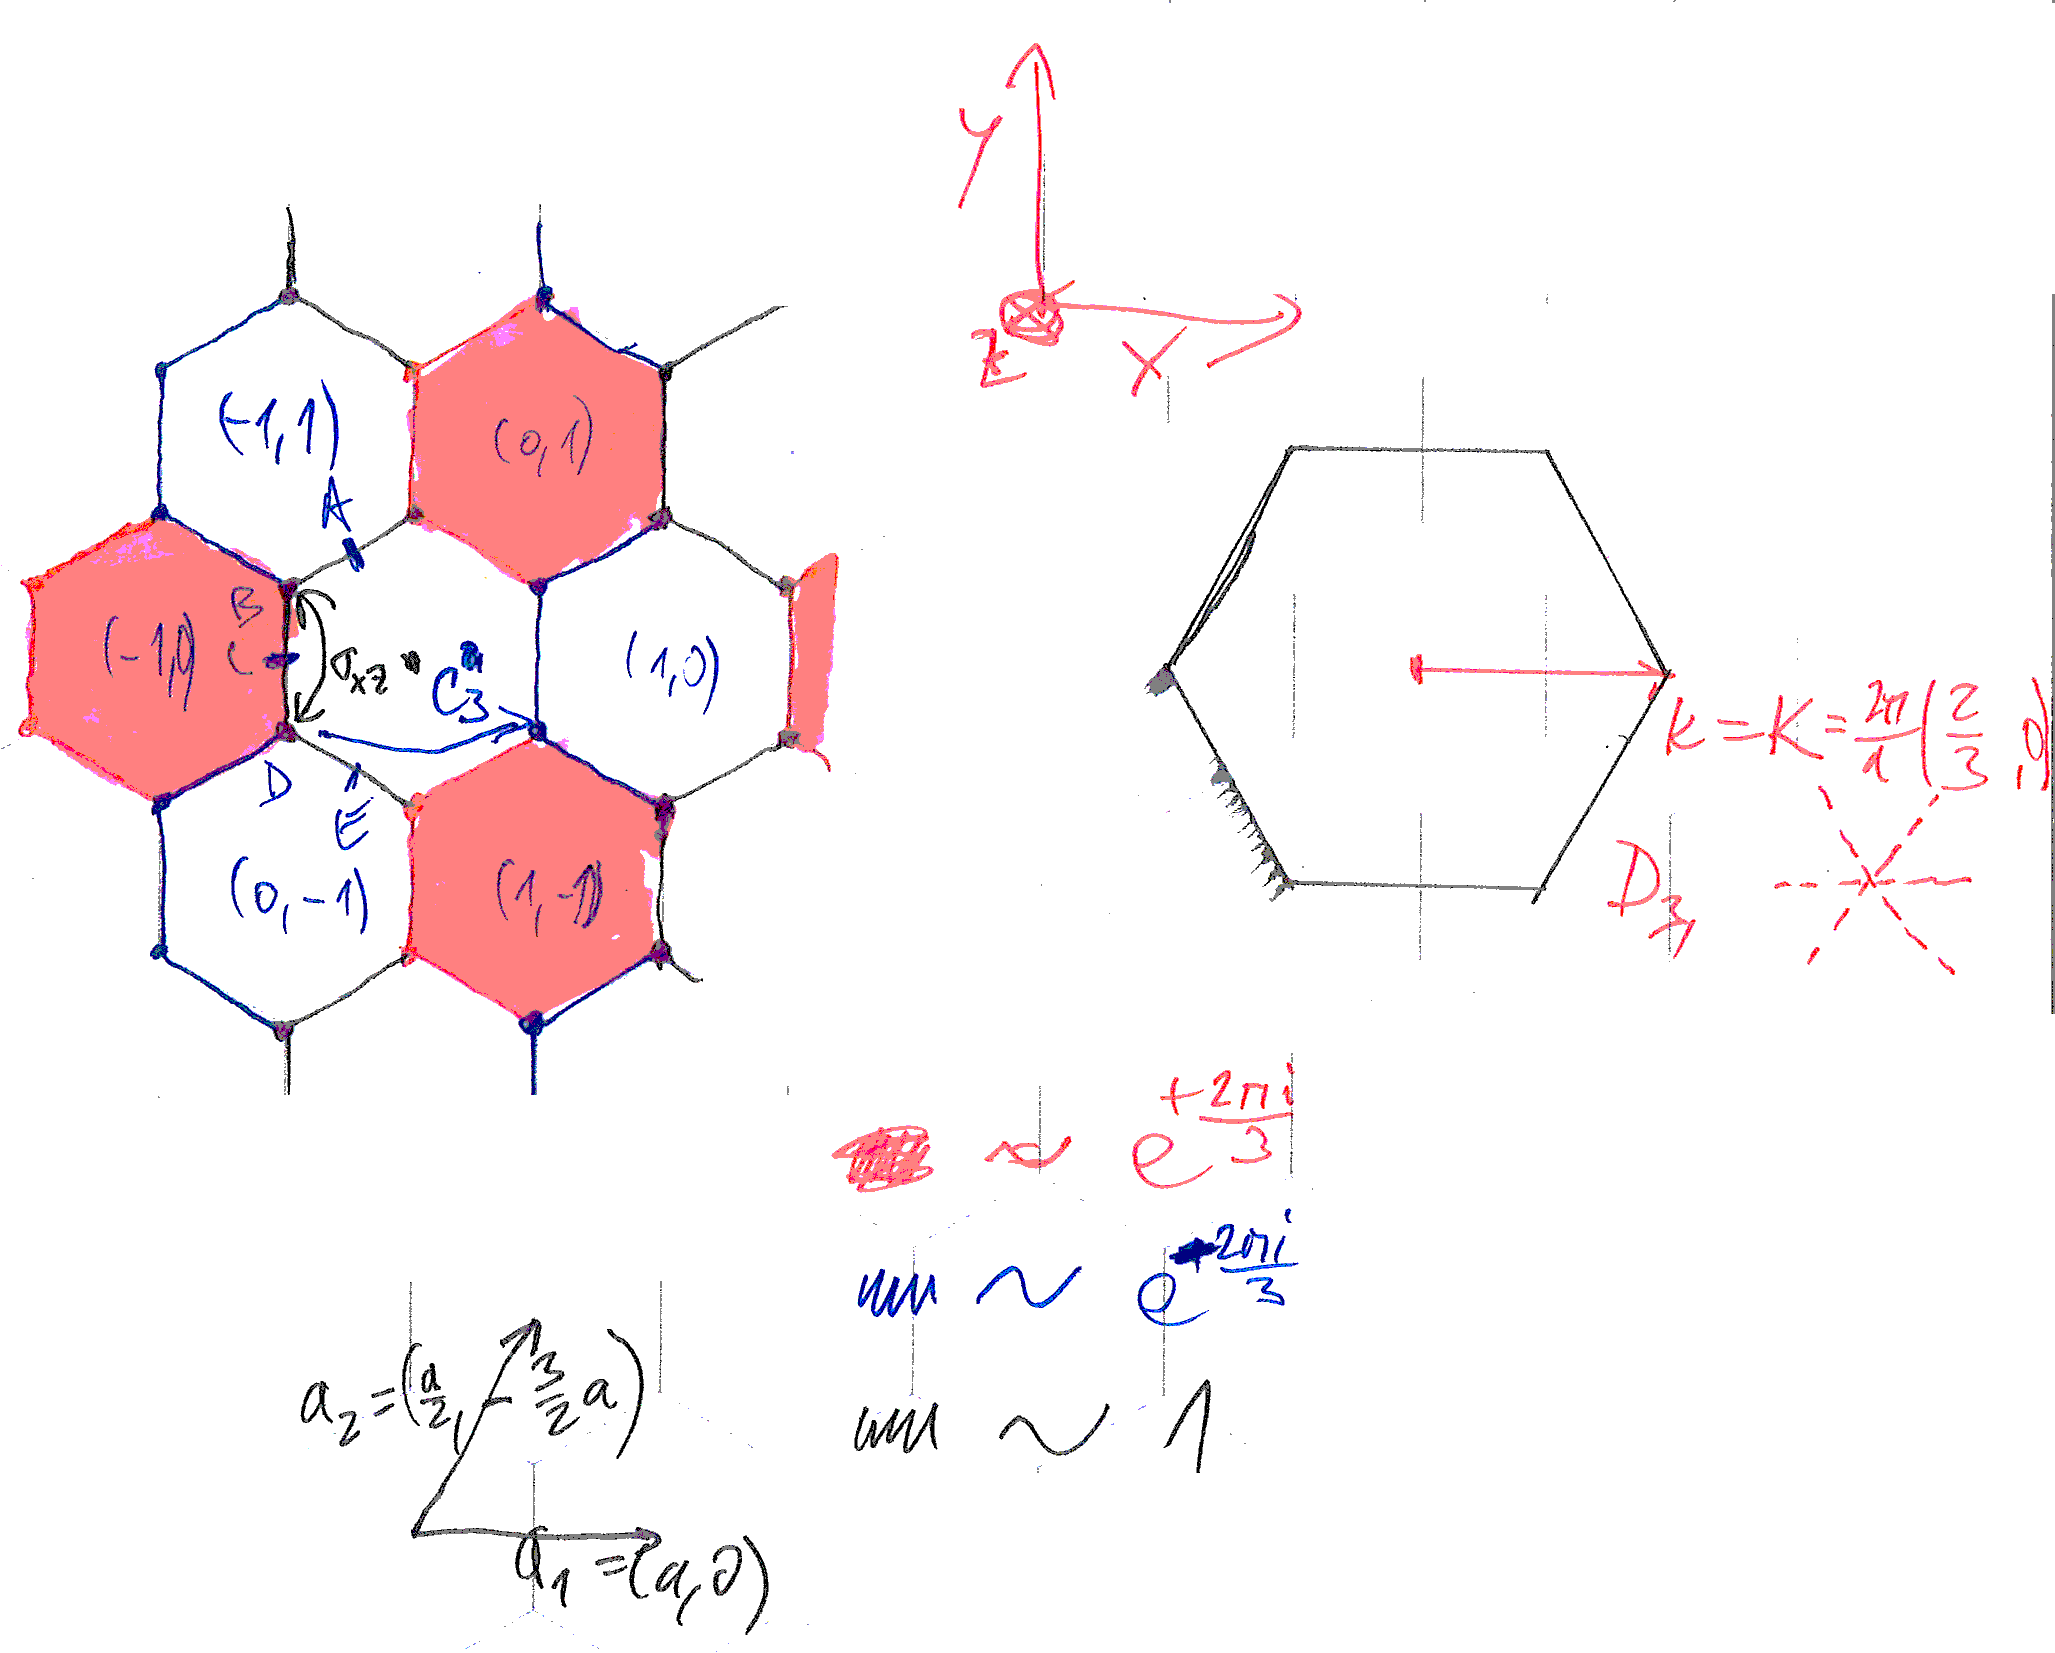 y
z
x
(-1,1)
(0,1)
A
B
(-1,0)
C
σxz
C3
(1,0)
D
E
(0,-1)
(1,-1)
k = K = 2π/a (2/3, 0)
D3
~ e^{+2πi/3}
~ e^{-2πi/3}
~ 1
a2 = (a/2, 3/2 a)
a1 = (a,0)